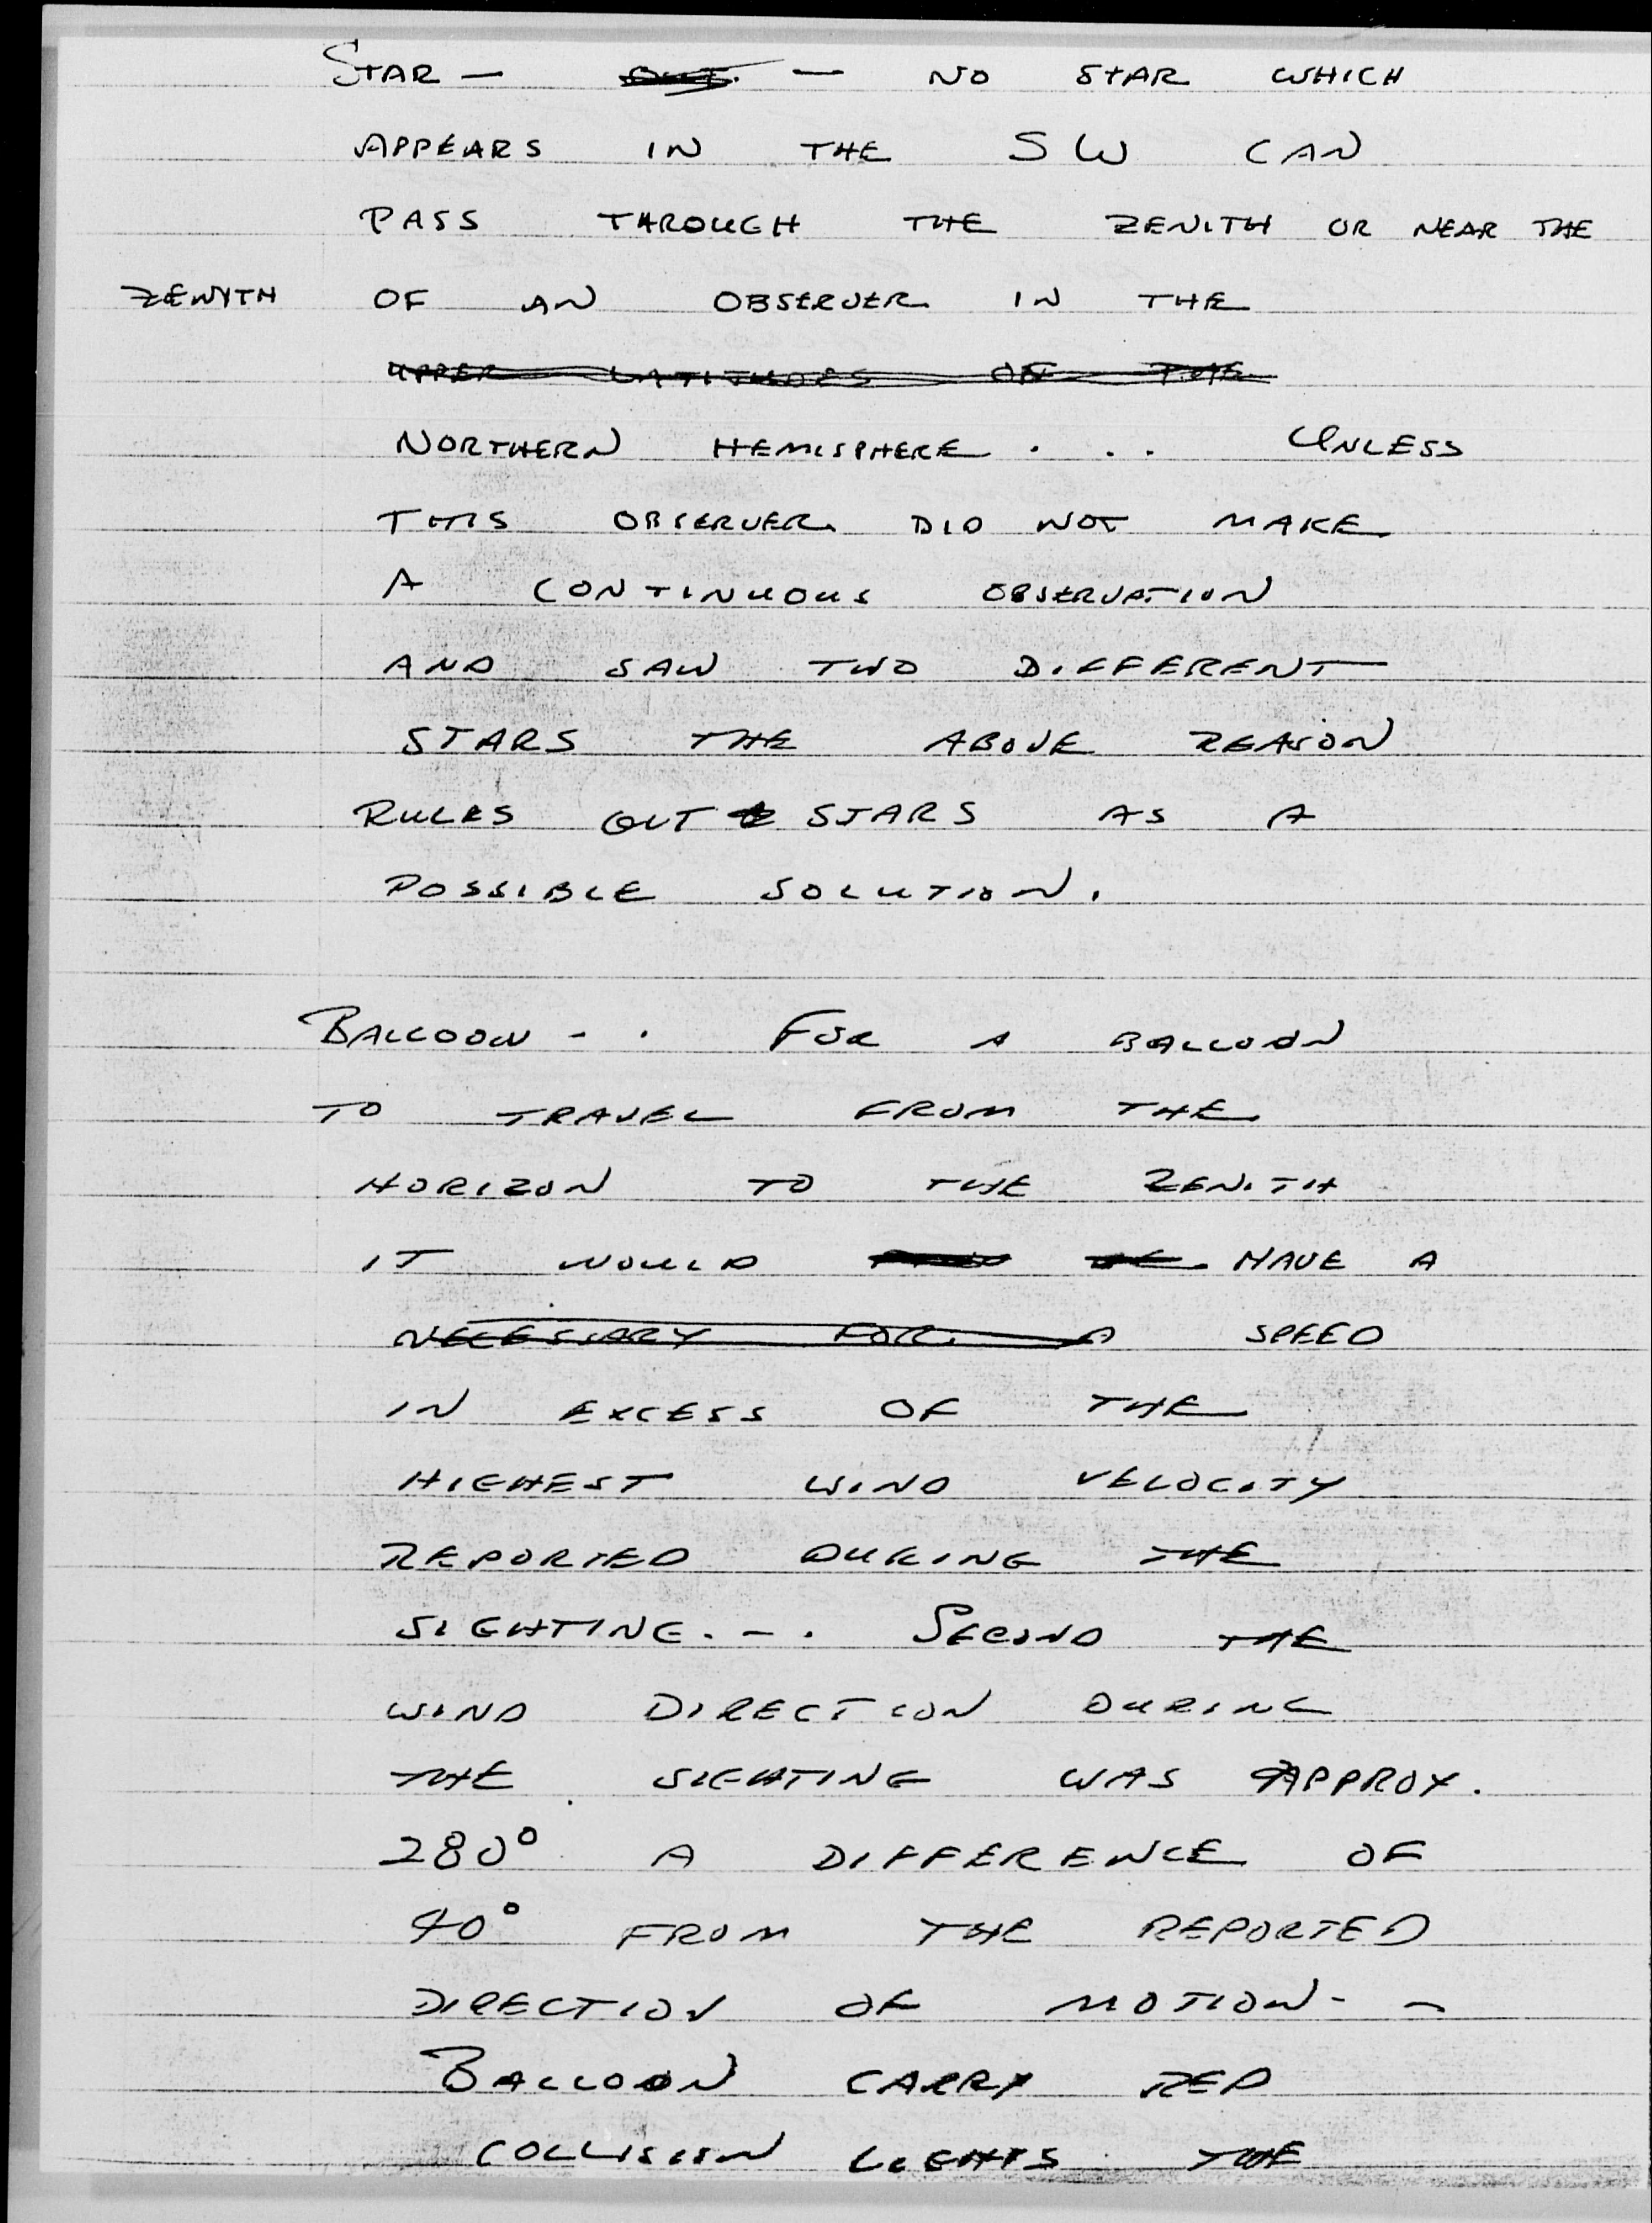 STAR — — NO STAR WHICH
APPEARS IN THE SW CAN
PASS THROUGH THE ZENITH OR NEAR THE
ZENYTH OF AN OBSERVER IN THE
UPPER LATITUDES OF THE
NORTHERN HEMISPHERE . . . UNLESS
THIS OBSERVER DID NOT MAKE
A CONTINUOUS OBSERVATION
AND SAW TWO DIFFERENT
STARS THE ABOVE REASON
RULES OUT STARS AS A
POSSIBLE SOLUTION.
BALLOON - . FOR A BALLOON
TO TRAVEL FROM THE
HORIZON TO THE ZENITH
IT WOULD HAVE A
NECESSARY FOR A SPEED
IN EXCESS OF THE
HIGHEST WIND VELOCITY
REPORTED DURING THE
SIGHTING. - . SECOND THE
WIND DIRECTION DURING
THE SIGHTING WAS APPROX.
280° A DIFFERENCE OF
40° FROM THE REPORTED
DIRECTION OF MOTION - -
BALLOON CARRY RED
COLLISION LIGHTS THE